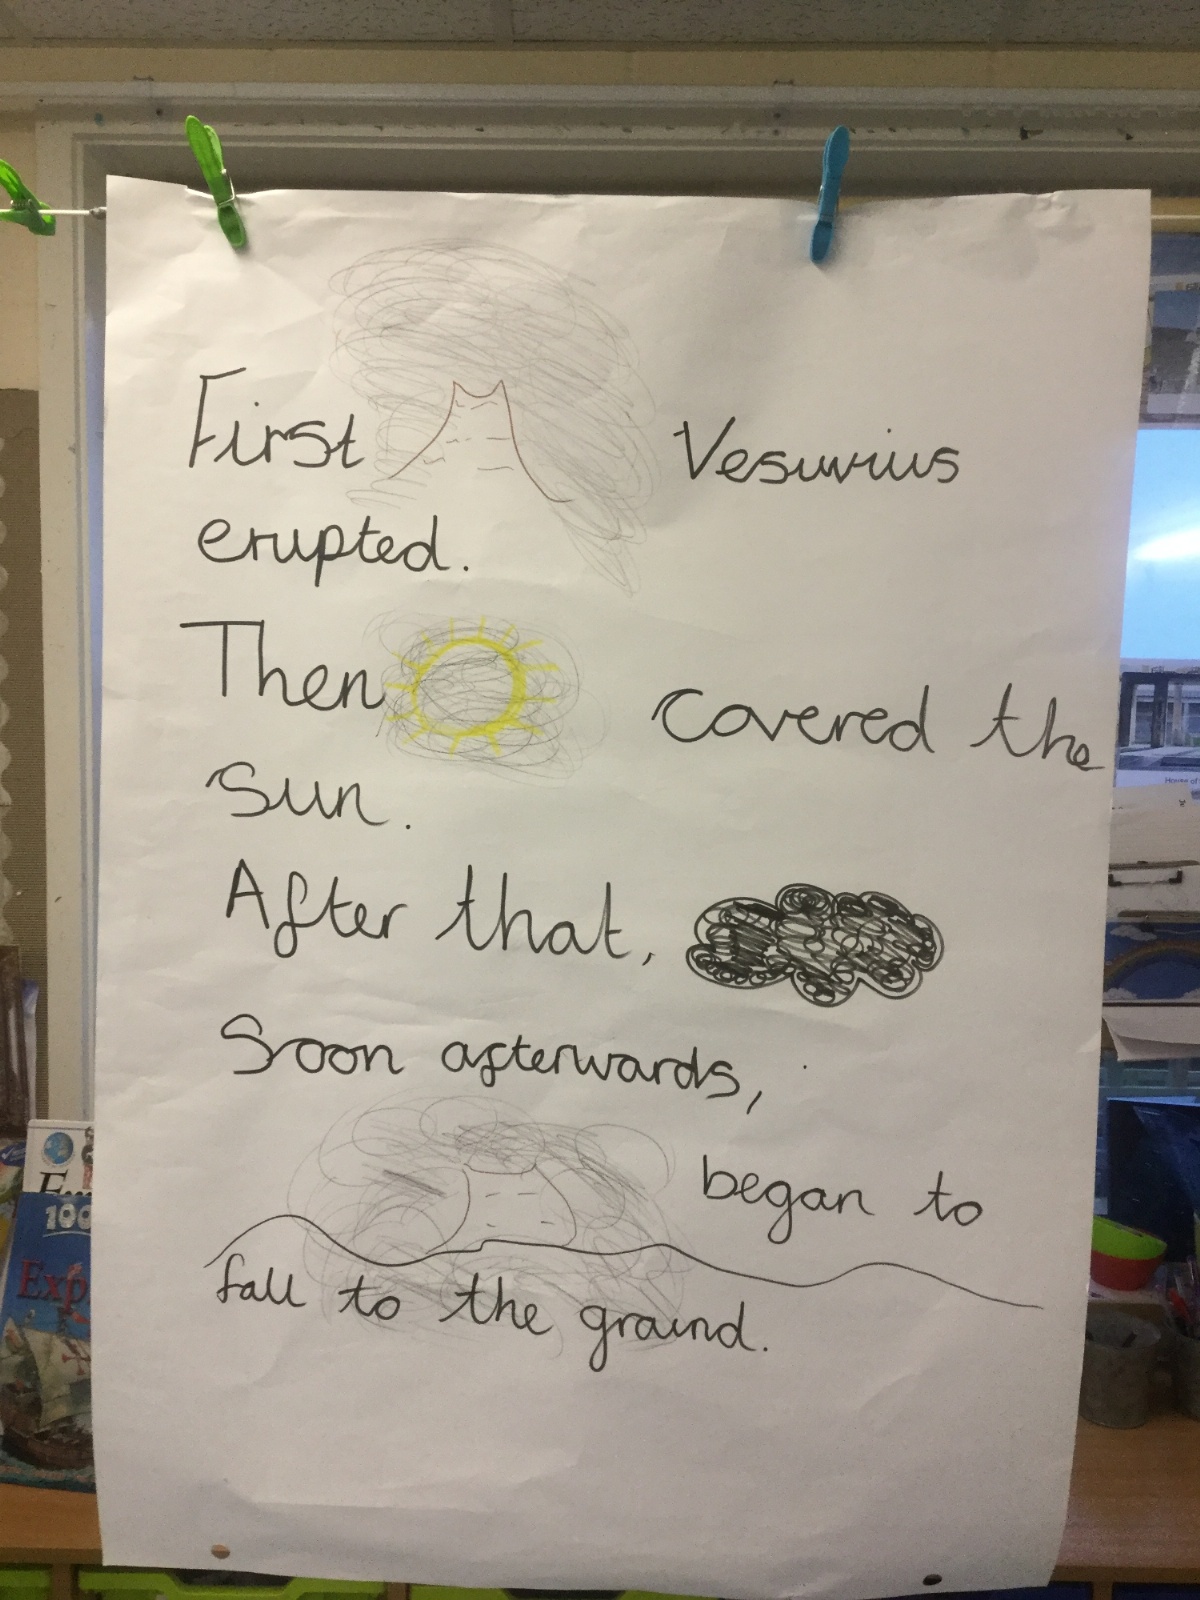 First Vesuvius
erupted.
Then covered the
sun.
After that,
Soon afterwards,
began to
fall to the ground.
100
Exp
House of